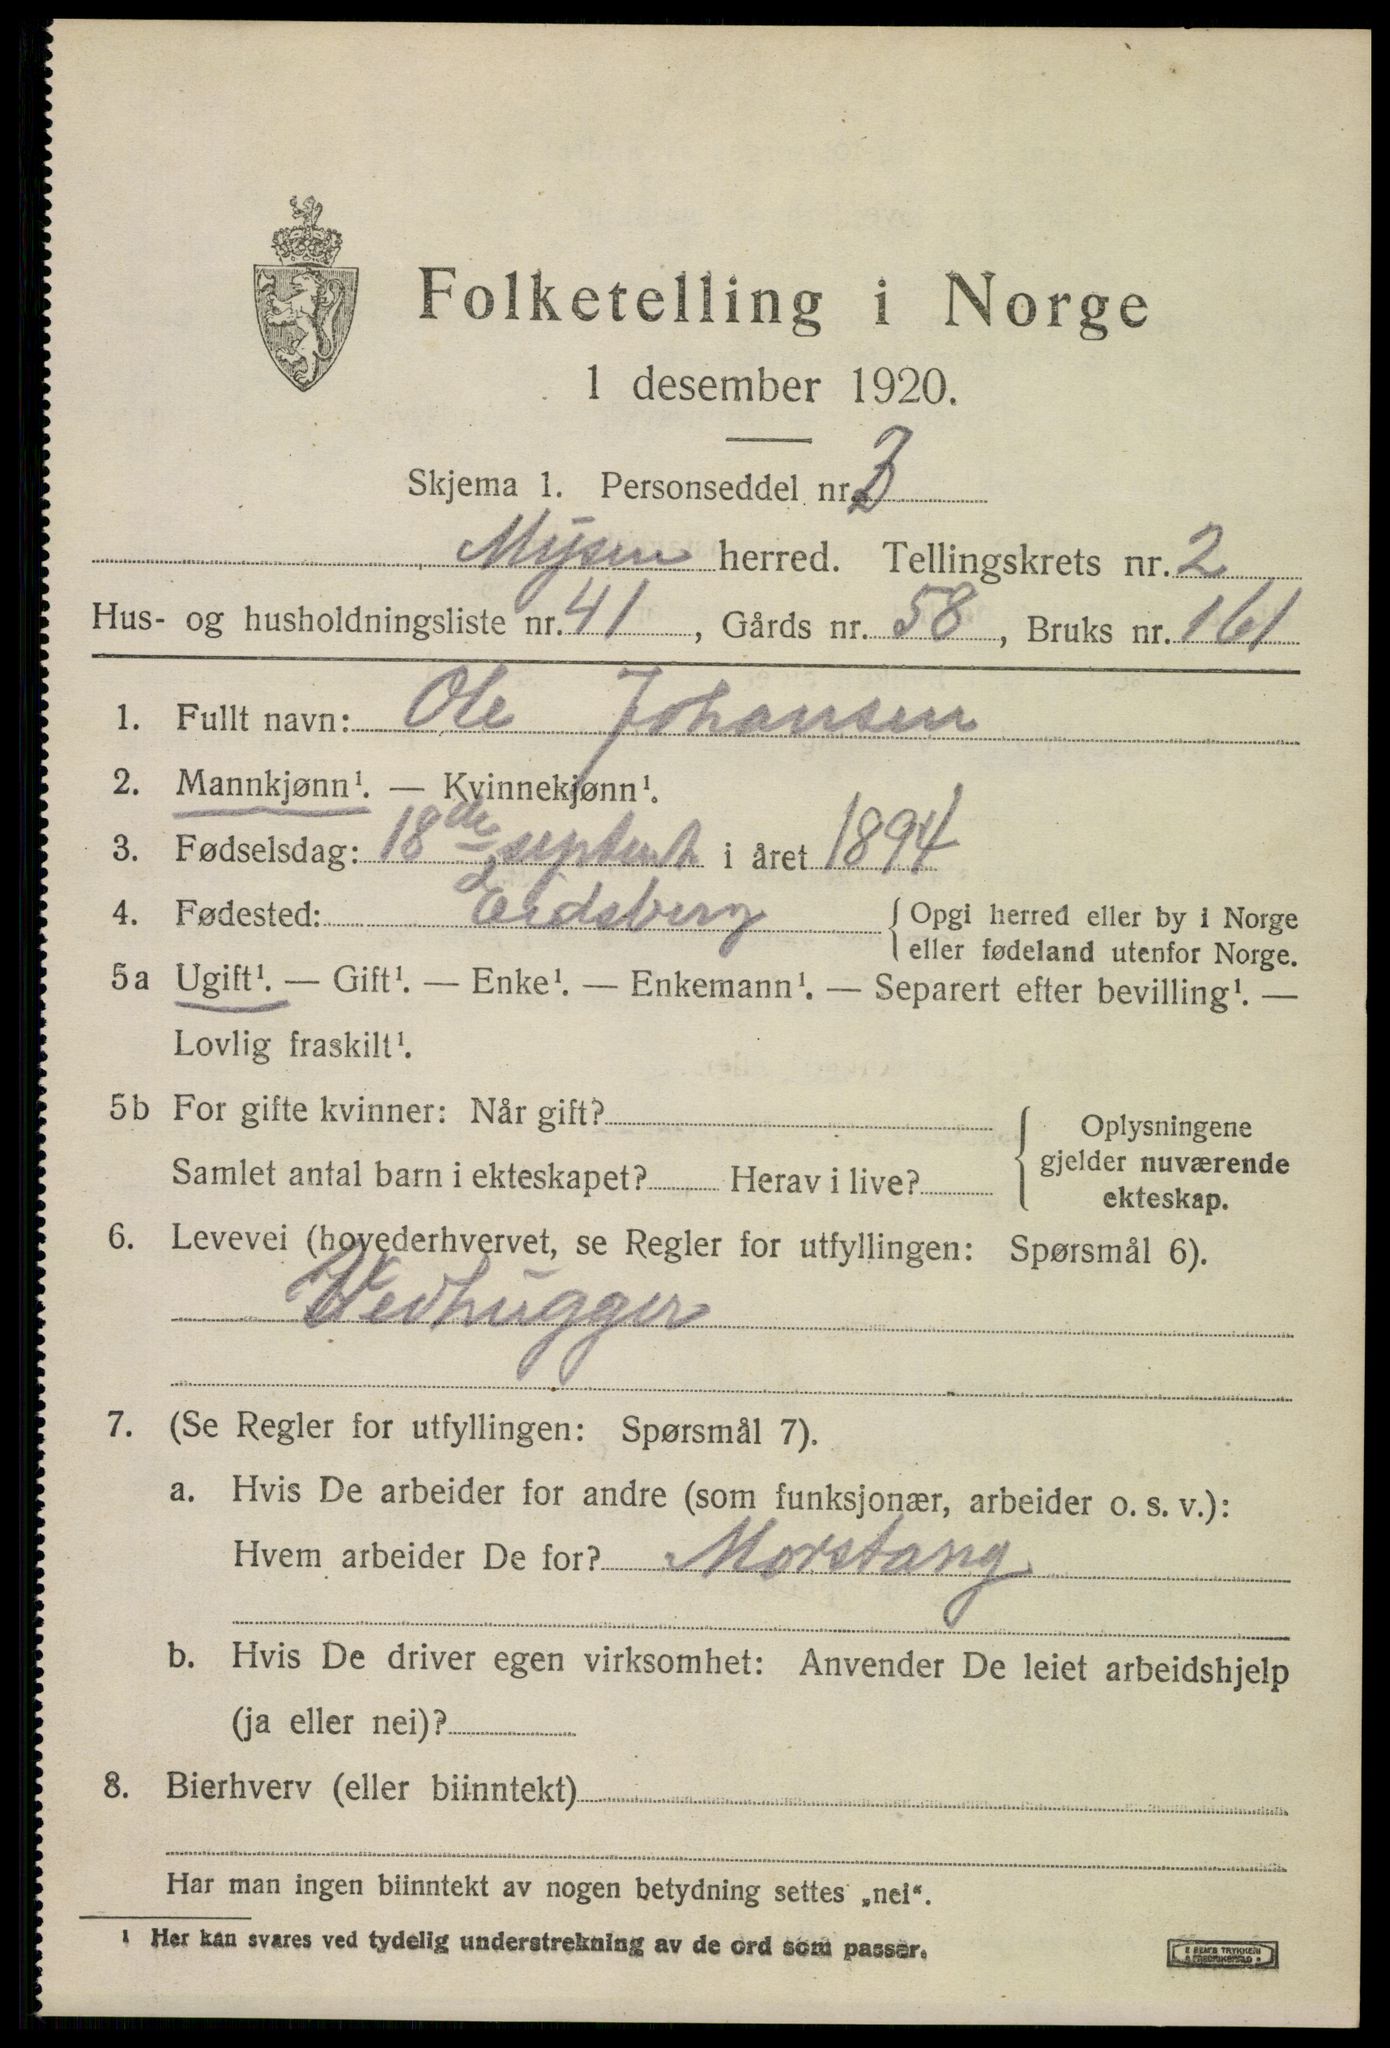 Folketelling i Norge
1 desember 1920.
Skjema 1. Personseddel nr. 3
Mysen herred. Tellingskrets nr. 2
Hus- og husholdningsliste nr. 41, Gårds nr. 58, Bruks nr. 161
1. Fullt navn: Ole Johansen
2. Mannkjønn¹. — Kvinnekjønn¹.
3. Fødselsdag: 18de septemb i året 1894
4. Fødested: Eidsberg { Opgi herred eller by i Norge
eller fødeland utenfor Norge.
5a Ugift¹. — Gift¹. — Enke¹. — Enkemann¹. — Separert efter bevilling¹. —
Lovlig fraskilt¹.
5b For gifte kvinner: Når gift? { Oplysningene
gjelder nuværende
ekteskap.
Samlet antal barn i ekteskapet? Herav i live?
6. Levevei (hovederhvervet, se Regler for utfyllingen: Spørsmål 6).
Vedhugger
7. (Se Regler for utfyllingen: Spørsmål 7).
a. Hvis De arbeider for andre (som funksjonær, arbeider o. s. v.):
Hvem arbeider De for? Morstang
b. Hvis De driver egen virksomhet: Anvender De leiet arbeidshjelp
(ja eller nei)?
8. Bierhverv (eller biinntekt)
Har man ingen biinntekt av nogen betydning settes „nei“.
¹ Her kan svares ved tydelig understrekning av de ord som passer.